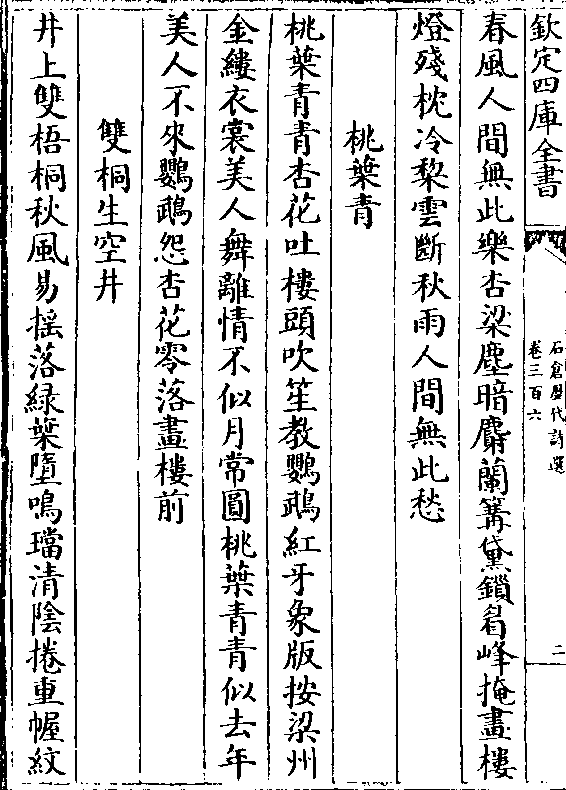 欽定四庫全書
石倉歷代詩選
卷三百六
二
春風人間無此樂杏梁塵暗麝蘭篝黛鎖眉峰掩畫樓
燈殘枕冷梨雲斷秋雨人間無此愁
桃葉青
桃葉青青杏花吐樓頭吹笙教鸚鵡紅牙象版按梁州
金縷衣裳美人舞離情不似月常圓桃葉青青似去年
美人不來鸚鵡怨杏花零落畫樓前
雙桐生空井
井上雙梧桐秋風易搖落緑葉墮鳴璫清陰捲重幄紋